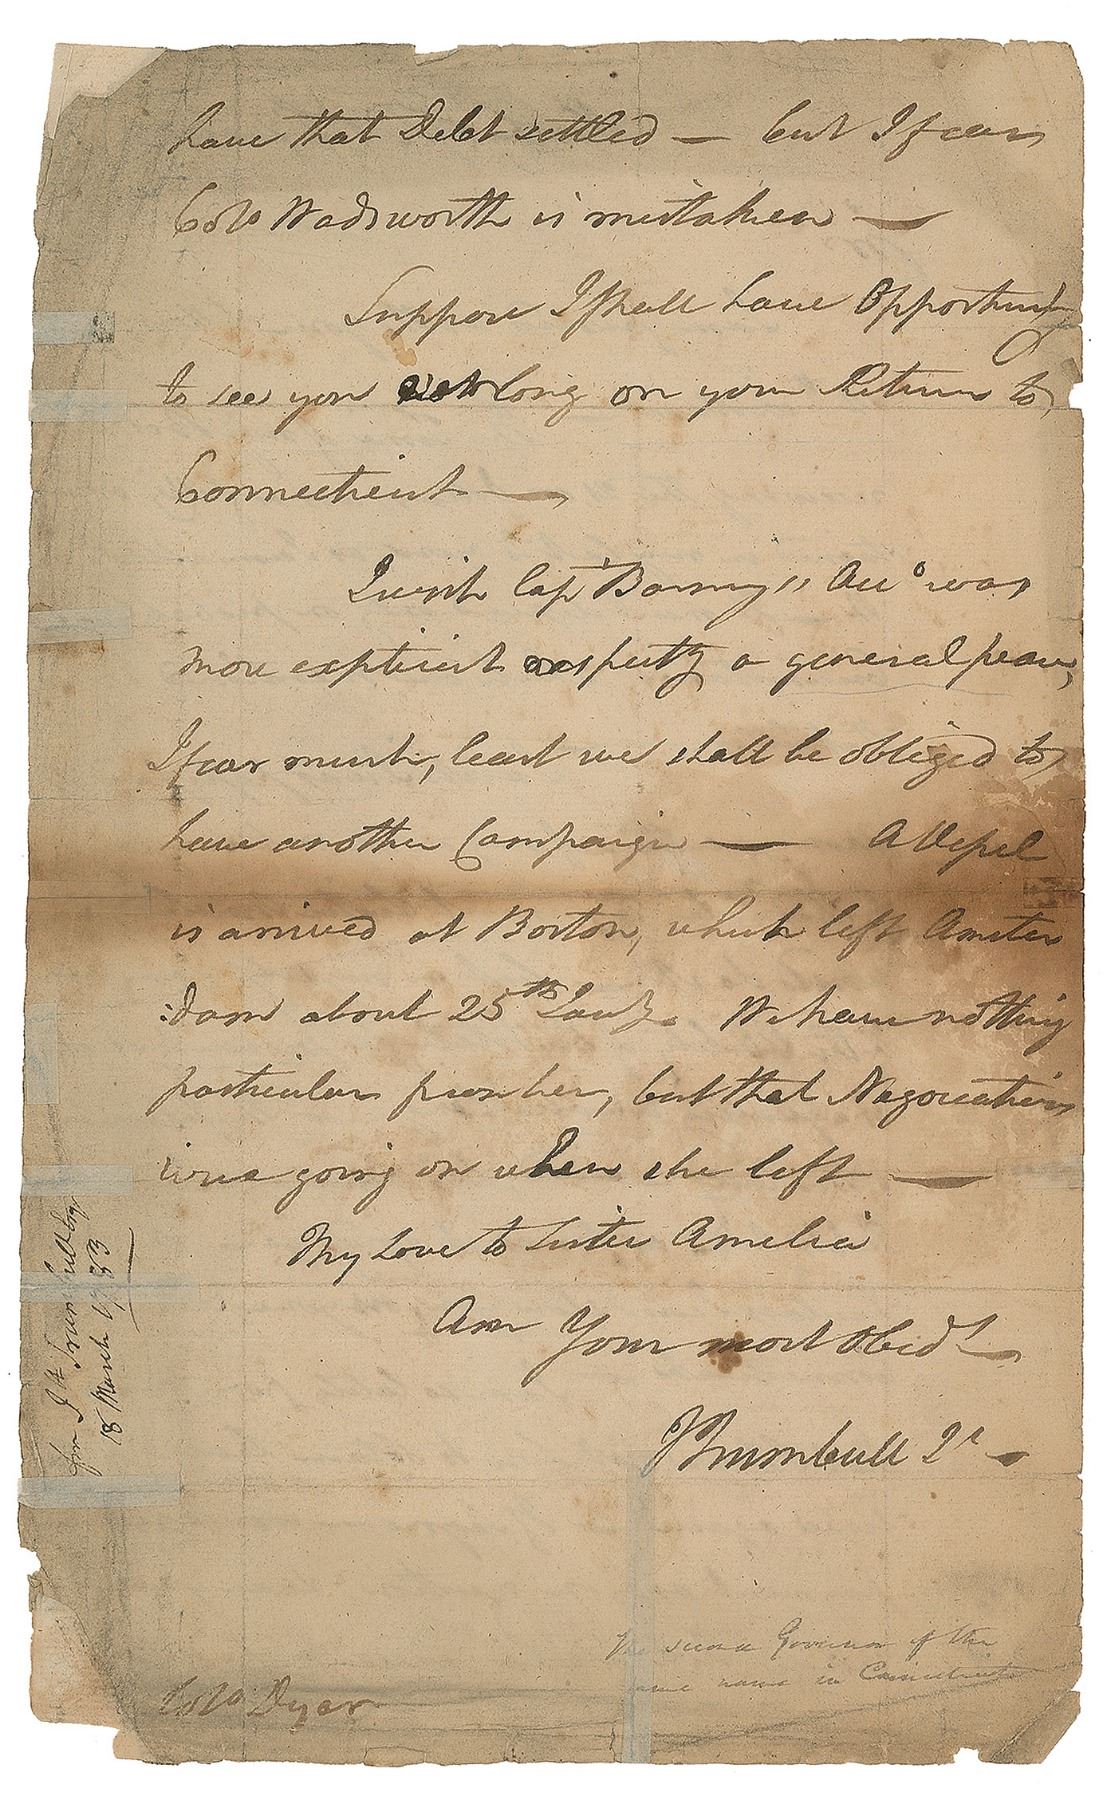 have that Debt settled — but I fear
Colo Wadsworth is mistaken —
Suppose I shall have Opportunity
to see you long on your Return to
Connecticut —
I wish Capt Barney's Acco was
more explicit respectg a general peace,
I fear much, least we shall be obliged to
have another Campaign — A Vessel
is arrived at Boston, which left Amster
:dam about 25th Jany. We have nothing
particular from her, but that Negociations
were going on when she left —
My Love to Sister Amelia
Am Your most Obedt
J Trumbull Jr —
Colo Dyer
second Governor of the
name in Connecticut
from J Trumbull Esqr
18 March 1783